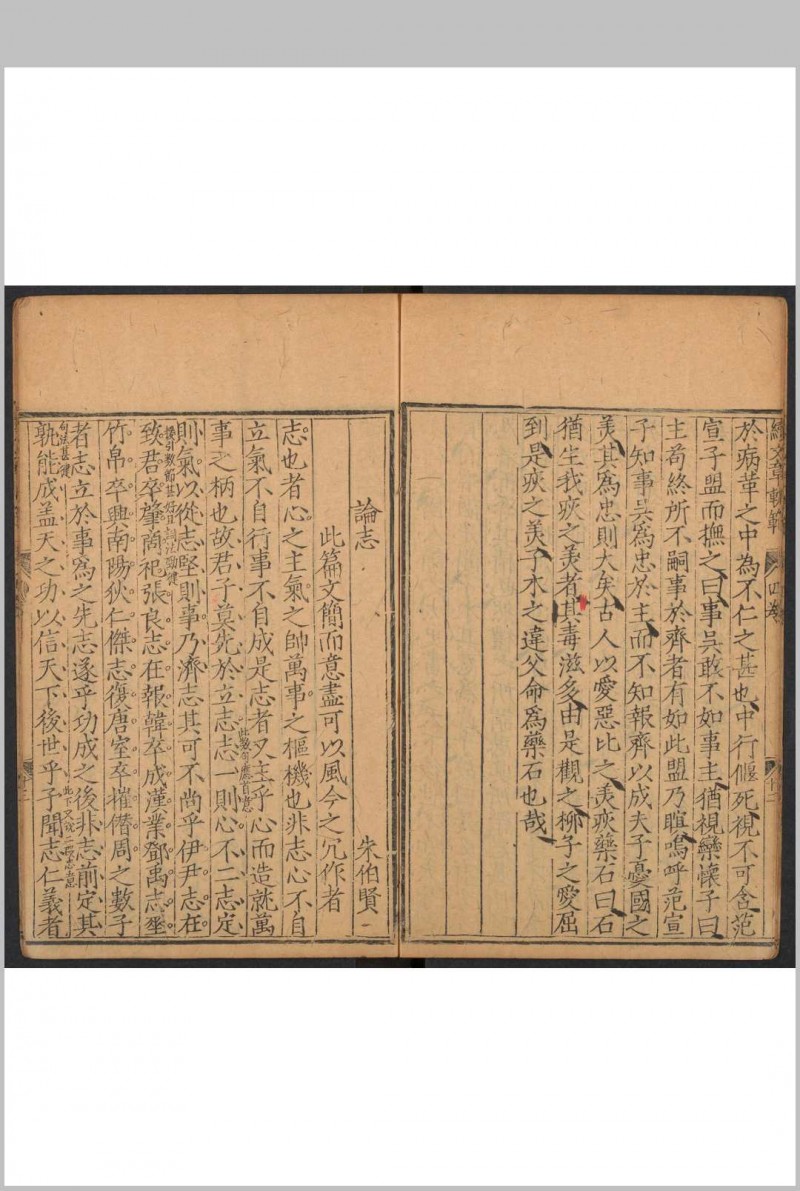 續文章軌範 四卷 十二
於病革之中為不仁之甚也中行偃死視不可含范
宣子盟而撫之曰事吳敢不如事主猶視欒懷子曰
主苟終所不嗣事於齊者有如此盟乃暄嗚呼范宣
子知事吳為忠於主而不知報齊以成夫子憂國之
羙其為忠則大矣古人以愛惡比之羙疢藥石曰石
猶生我疢之羙者其毒滋多由是觀之柳子之愛屈
到是疢之羙子木之違父命為藥石也哉
論志 朱伯賢
此篇文簡而意盡可以風今之冗作者
志也者心之主氣之帥萬事之樞機也非志心不自
立氣不自行事不自成是志者又主乎心而造就萬
事之柄也故君子莫先於立志志一則心不二志定
則氣以從志堅則事乃濟志其可不尚乎伊尹志在
致君卒肇商祀張良志在報韓卒成漢業鄧禹志垂
竹帛卒興南陽狄仁傑志復唐室卒摧僭周之數子
者志立於事為之先志遂乎功成之後非志前定其
孰能成盖天之功以信天下後世乎予聞志仁義者